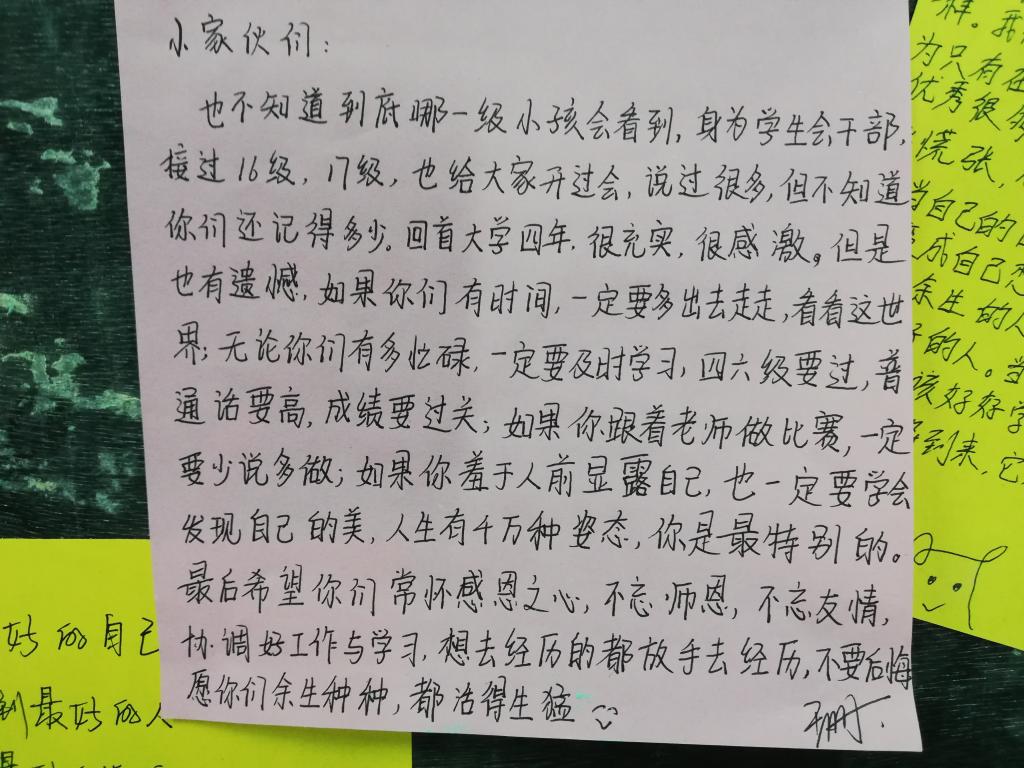 小家伙们:
也不知道到底哪一级小孩会看到,身为学生会干部,
接过16级,17级,也给大家开过会,说过很多,但不知道
你们还记得多少。回首大学四年.很充实,很感激。但是
也有遗憾.如果你们有时间,一定要多出去走走,看看这世
界;无论你们有多忙碌,一定要及时学习,四六级要过,普
通话要高,成绩要过关;如果你跟着老师做比赛,一定
要少说多做;如果你羞于人前显露自己,也一定要学会
发现自己的美,人生有千万种姿态,你是最特别的。
最后希望你们常怀感恩之心,不忘师恩,不忘友情,
协调好工作与学习.想去经历的都放手去经历,不要后悔
愿你们余生种种,都活得生猛
样。我
为只有在
优秀很多
慌张,
当自己的
成自己想
余生的人
的人。当
该好好学
到来,它
好的自己
到最好的人